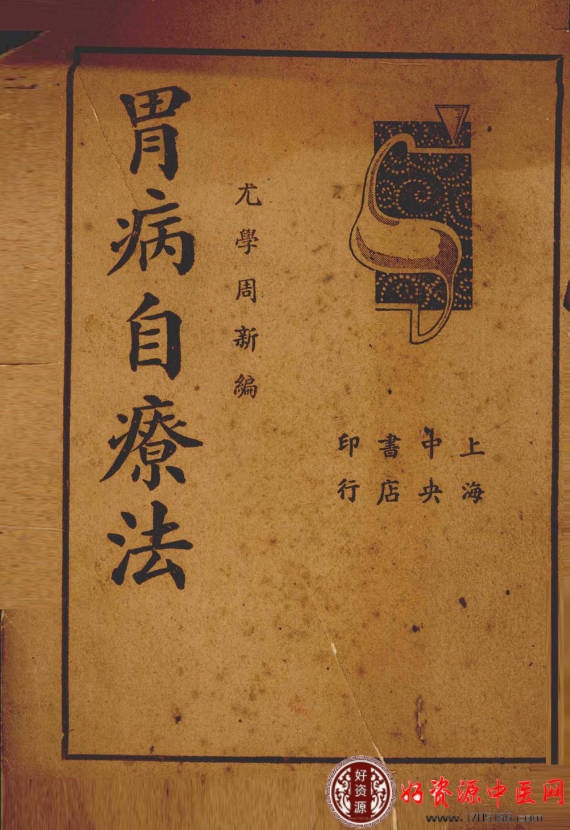 胃病自療法
尤學周新編
上海
中央
書店
印行
好資源
好资源中医网